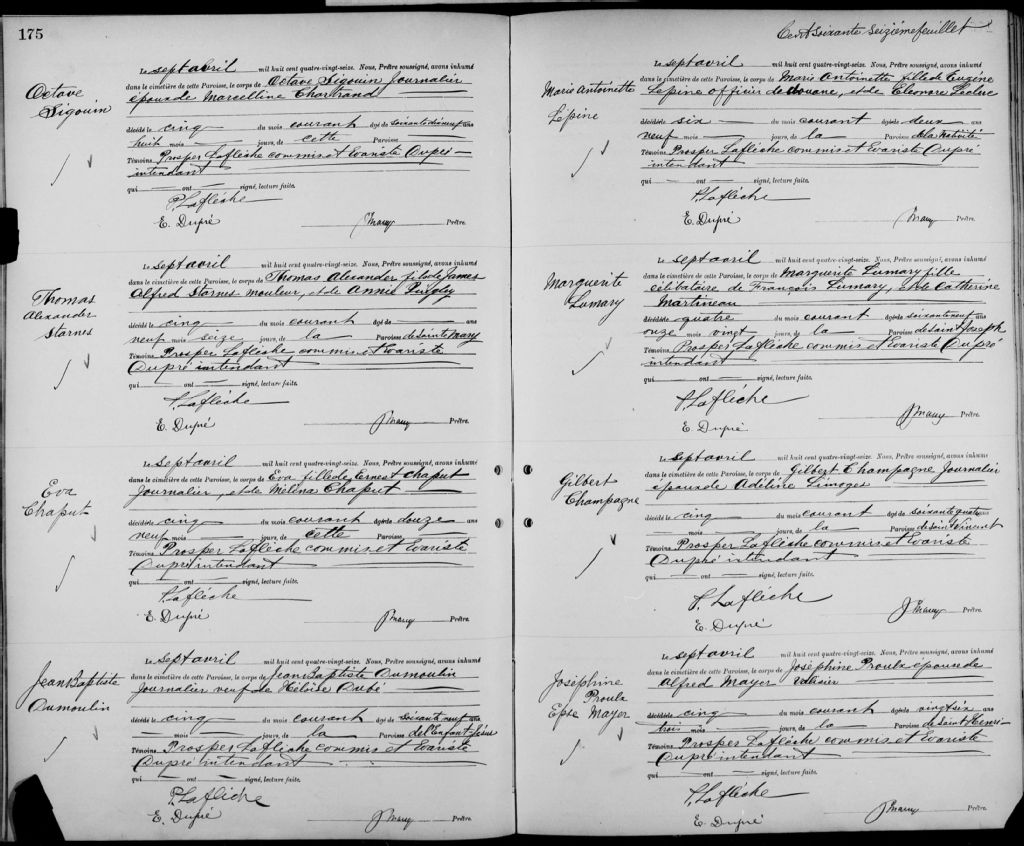 175
Octave
Sigouin
Le sept avril mil huit cent quatre-vingt-seize. Nous, Prêtre soussigné, avons inhumé
dans le cimetière de cette Paroisse, le corps de Octave Sigouin Journalier
époux de Marcelline Chartrand
décédé le cinq du mois courant âgé de soixante dix neuf ans
huit mois jours, de cette Paroisse.
Témoins Prosper Laflèche commis et Evariste Dupré
intendant
qui ont signé, lecture faite.
P. Laflèche
E. Dupré Prêtre.
Thomas
Alexander
Starnes
Le sept avril mil huit cent quatre-vingt-seize. Nous, Prêtre soussigné, avons inhumé
dans le cimetière de cette Paroisse, le corps de Thomas Alexander fils de James
Alfred Starnes mouleur, et de Annie
décédé le cinq du mois courant âgé de
neuf mois seize jours, de la Paroisse de Sainte Mary
Témoins Prosper Laflèche commis et Evariste
Dupré intendant
qui ont signé, lecture faite.
P. Laflèche
E. Dupré Prêtre.
Eva
Chaput
Le sept avril mil huit cent quatre-vingt-seize. Nous, Prêtre soussigné, avons inhumé
dans le cimetière de cette Paroisse, le corps de Eva fille de Ernest Chaput
Journalier, et de Mélina Chaput
décédé le cinq du mois courant âgé de douze ans
neuf mois jours, de cette Paroisse.
Témoins Prosper Laflèche commis et Evariste
Dupré intendant
qui ont signé, lecture faite.
P. Laflèche
E. Dupré Prêtre.
Jean Baptiste
Dumoulin
Le sept avril mil huit cent quatre-vingt-seize. Nous, Prêtre soussigné, avons inhumé
dans le cimetière de cette Paroisse, le corps de Jean Baptiste Dumoulin
Journalier veuf de Héloïse Dubé
décédé le cinq du mois courant âgé de soixante neuf ans
mois jours, de la Paroisse de l'Enfant-Jésus
Témoins Prosper Laflèche commis et Evariste
Dupré intendant
qui ont signé, lecture faite.
P. Laflèche
E. Dupré Prêtre.
Cent soixante seizième feuillet
Marie Antoinette
Lépine
Le sept avril mil huit cent quatre-vingt-seize. Nous, Prêtre soussigné, avons inhumé
dans le cimetière de cette Paroisse, le corps de Marie Antoinette fille de Eugène
Lépine officier de douane, et de Eléonore Leclerc
décédé le six du mois courant âgé de deux ans
neuf mois jours, de la Paroisse de la Nativité
Témoins Prosper Laflèche commis et Evariste Dupré
intendant
qui ont signé, lecture faite.
P. Laflèche
E. Dupré Prêtre.
Marguerite
Lumary
Le sept avril mil huit cent quatre-vingt-seize. Nous, Prêtre soussigné, avons inhumé
dans le cimetière de cette Paroisse, le corps de Marguerite Lumary fille
célibataire de François Lumary, et de Catherine
Martineau
décédé le quatre du mois courant âgé de soixante neuf ans
onze mois vingt jours, de la Paroisse de Saint Joseph
Témoins Prosper Laflèche commis et Evariste Dupré
intendant
qui ont signé, lecture faite.
P. Laflèche
E. Dupré Prêtre.
Gilbert
Champagne
Le sept avril mil huit cent quatre-vingt-seize. Nous, Prêtre soussigné, avons inhumé
dans le cimetière de cette Paroisse, le corps de Gilbert Champagne Journalier
époux de Limoges
décédé le cinq du mois courant âgé de soixante quatre ans
mois jours, de la Paroisse de Saint Vincent
Témoins Prosper Laflèche commis et Evariste
Dupré intendant
qui ont signé, lecture faite.
P. Laflèche
E. Dupré Prêtre.
Joséphine
Proulx
Epse Mayer
Le sept avril mil huit cent quatre-vingt-seize. Nous, Prêtre soussigné, avons inhumé
dans le cimetière de cette Paroisse, le corps de Joséphine Proulx épouse de
Alfred Mayer
décédé le cinq du mois courant âgé de vingt six ans
trois mois jours, de la Paroisse de Saint Henri
Témoins Prosper Laflèche commis et Evariste
Dupré intendant
qui ont signé, lecture faite.
P. Laflèche
E. Dupré Prêtre.